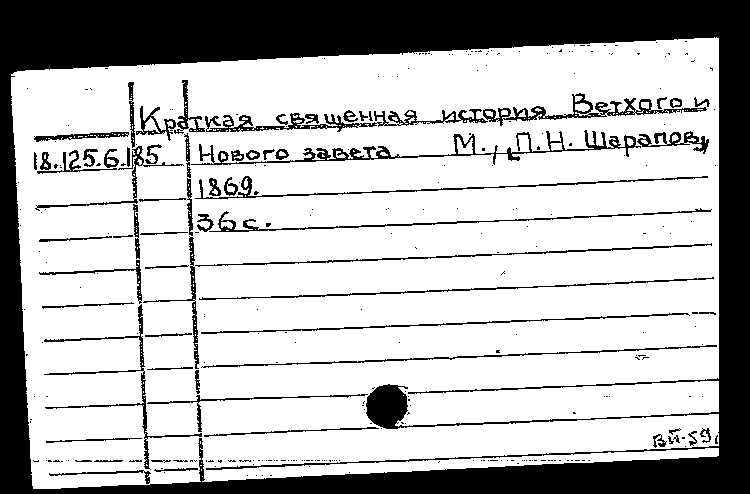 Краткая священная история Ветхого и
18.125.6.185. Нового завета. М., [П.Н. Шарапов],
1869.
36 с.
ВЙ-59